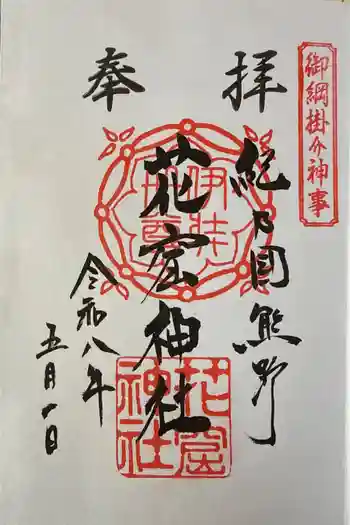 御綱掛け神事
奉拝
紀乃國熊野
花窟神社
花窟神社
令和八年
五月十日